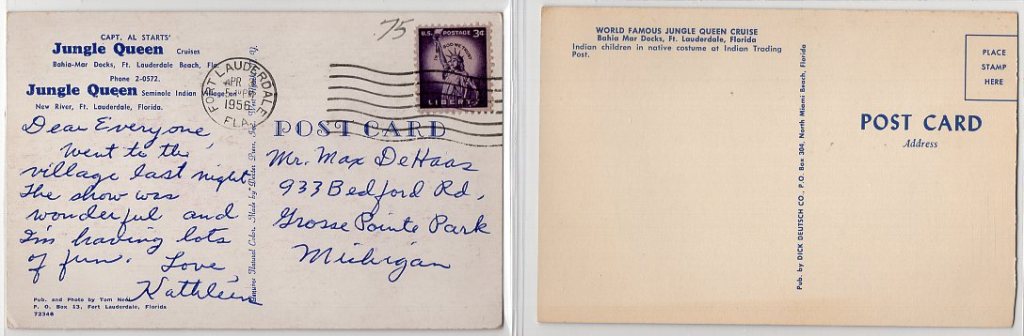 CAPT. AL STARTS'
Jungle Queen Cruises
Bahia-Mar Docks, Ft. Lauderdale Beach,
Phone 2-0572.
Jungle Queen Seminole Indian Village
New River, Ft. Lauderdale, Florida.
75
U.S. POSTAGE 3¢
IN GOD WE TRUST
LIBERTY
FORT LAUDERDALE
APR
1956
FLA.
POST CARD
Dear Everyone,
Went to the
village last night
The show was
wonderful and
I'm having lots
of fun.
Love,
Kathleen
Mr. Max DeHaas
933 Bedford Rd,
Grosse Pointe Park
Michigan
Genuine Natural Color. Made by Dexter Press, Inc.
Pub. and Photo by Tom
P. O. Box 13, Fort Lauderdale, Florida
72346
WORLD FAMOUS JUNGLE QUEEN CRUISE
Bahia Mar Docks, Ft. Lauderdale, Florida
Indian children in native costume at Indian Trading
Post.
Pub. by DICK DEUTSCH CO., P.O. Box 304, North Miami Beach, Florida
PLACE
STAMP
HERE
POST CARD
Address